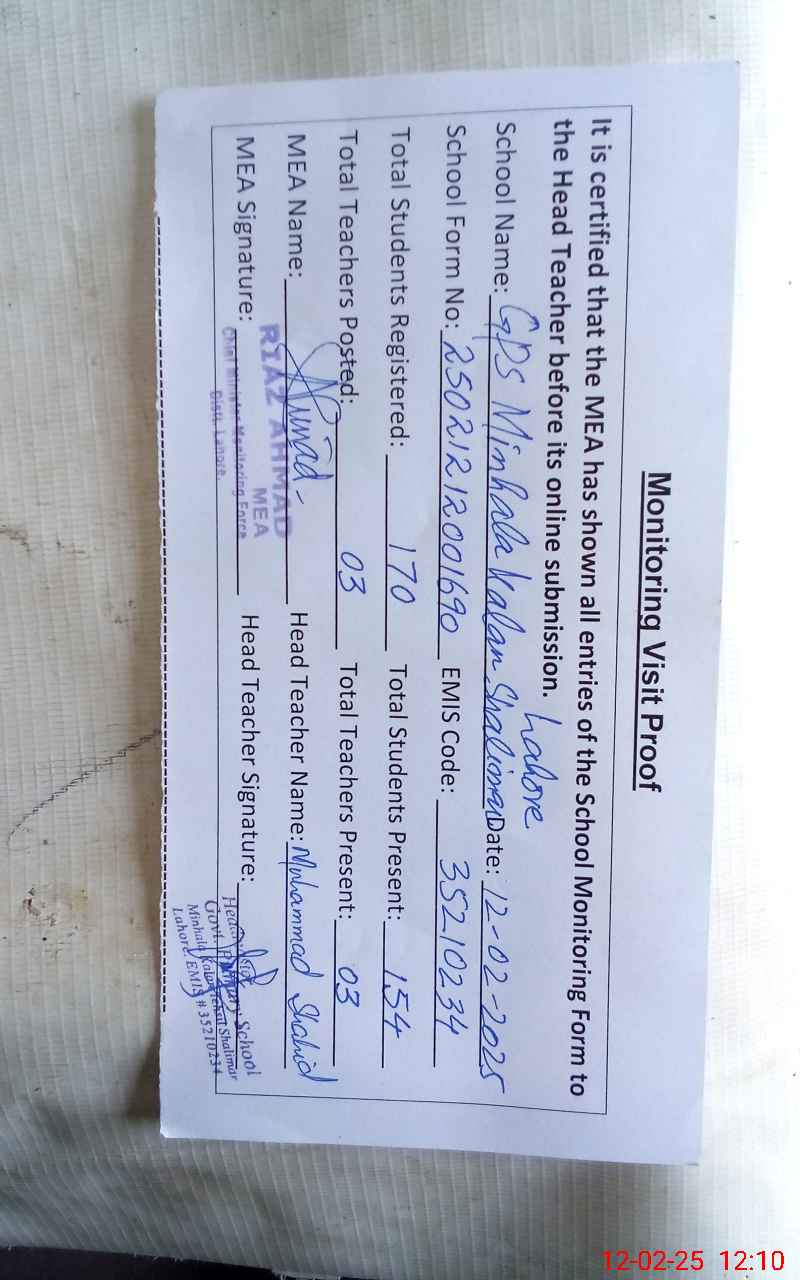 Monitoring Visit Proof
It is certified that the MEA has shown all entries of the School Monitoring Form to
the Head Teacher before its online submission.
Lahore
School Name: GPS Minhala Kalan Shalimar Date: 12-02-2025
School Form No: 25021212001690 EMIS Code: 35210234
Total Students Registered: 170 Total Students Present: 154
Total Teachers Posted: 03 Total Teachers Present: 03
MEA Name: Head Teacher Name: Muhammad Shahid
RIAZ AHMAD
MEA
MEA Signature: Head Teacher Signature:
Chief Minister Monitoring Force
Distt. Lahore
Govt. Primary School
Minhala Kalan Tehsil Shalimar
Lahore. EMIS # 35210234
12-02-25 12:10